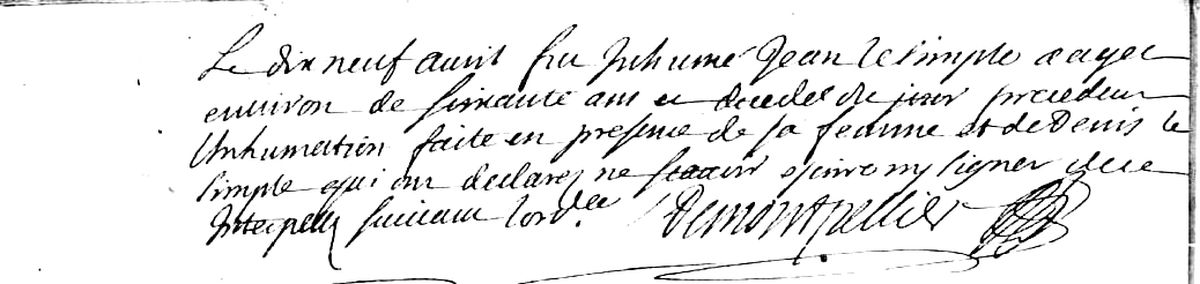 Le dix neuf avril fut Inhumé Jean le simple aagé
environ de soixante ans et decedé du jour precedent
l'Inhumation faite en presence de sa femme et de Denis le
simple qui ont declarez ne scavoir escrire ny signer de ce
Interpellez suivant l'ord.ce Demontpellier